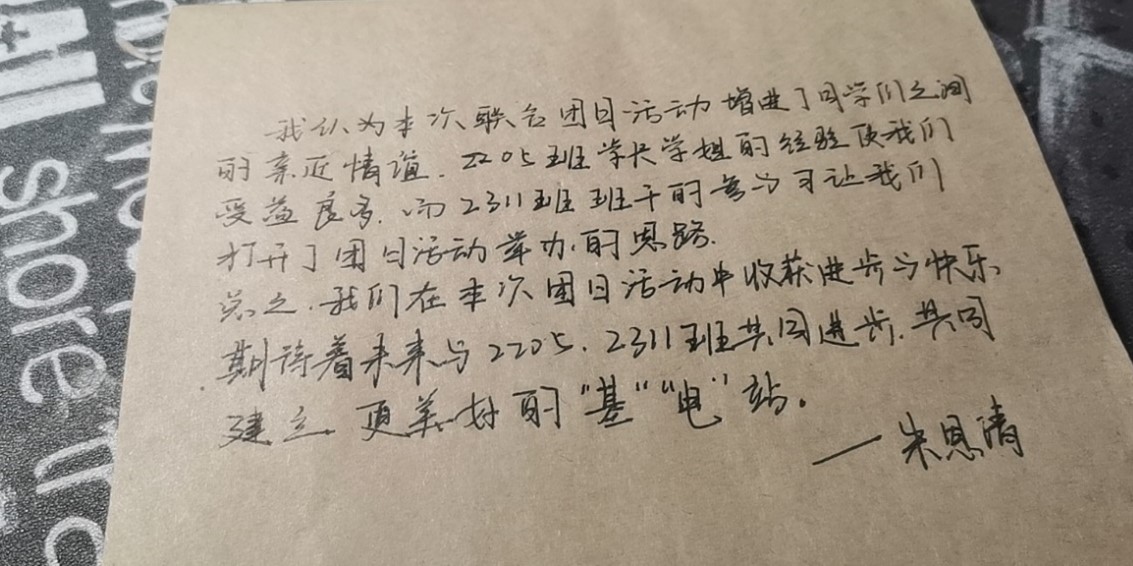 我认为本次联合团日活动增进了同学们之间
的亲近情谊.2205班学长学姐的经验使我们
受益良多.而2311班班干的参与可让我们
打开了团日活动举办的思路.
总之.我们在本次团日活动中收获进步与快乐
期待着未来与2205.2311班共同进步.共同
建立更美好的"基""电"站。
—朱思清
share